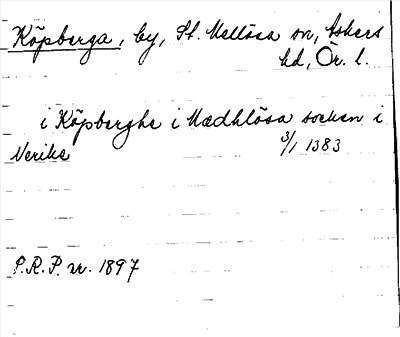 Köpberga, by, St. Mellösa sn, Askers
hd, Ör. l.
i Köpberghe i Mædhlösa socken i
Nerike 3/1 1383
P.R.P. nr. 1897